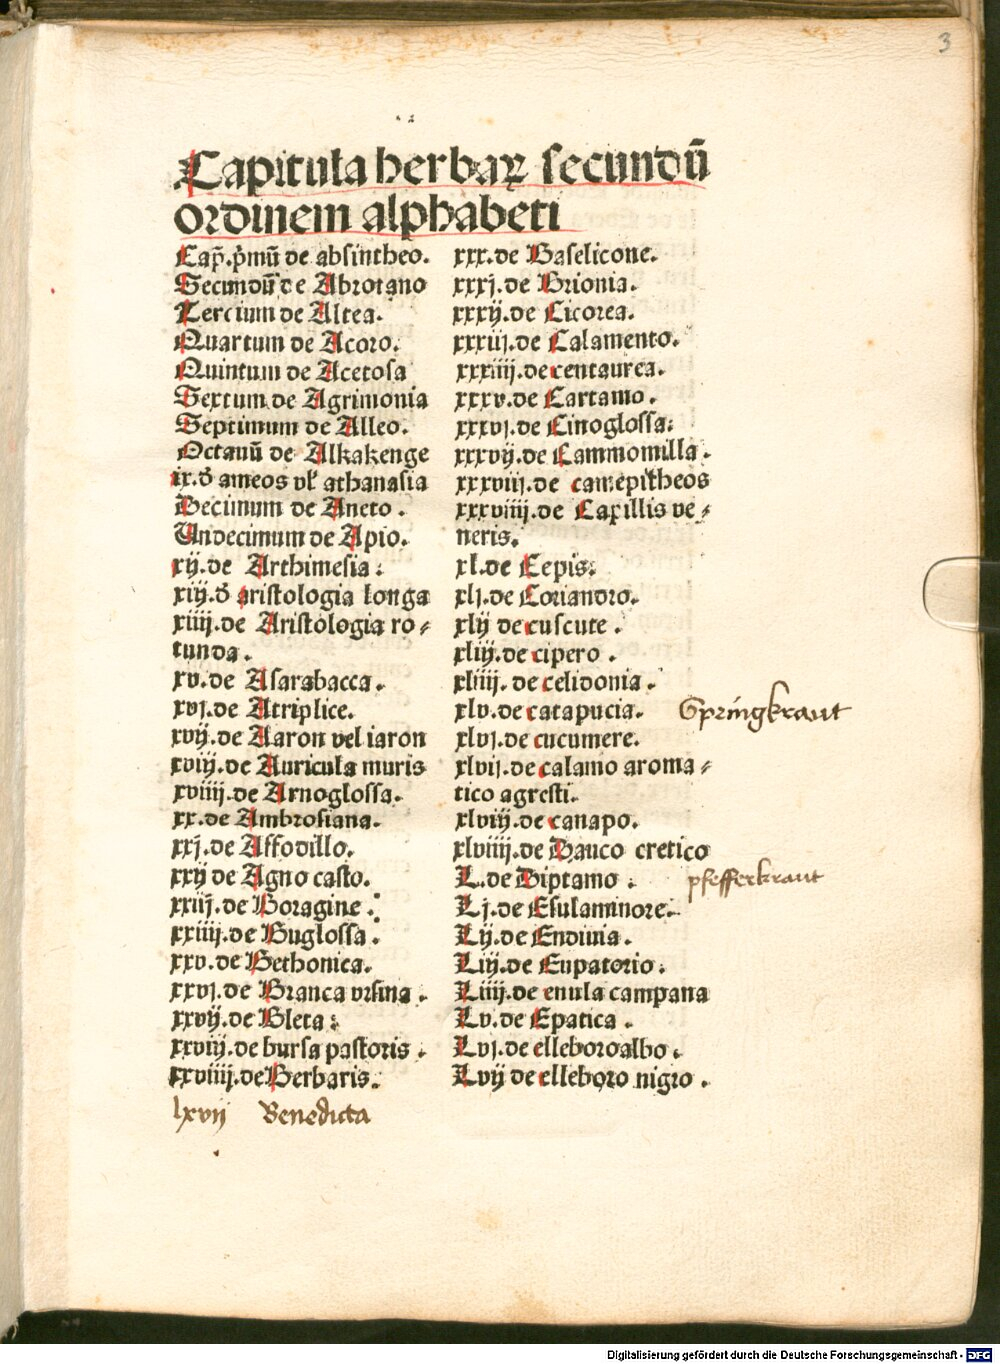 3
Capitula herbaꝝ secundū
ordinem alphabeti
Cap̄.p̄mū de absintheo.
Secundū de Abrotano
Tercium de Altea.
Quartum de Acoro.
Quintum de Acetosa
Sextum de Agrimonia
Septimum de Alleo.
Octauū de Alkakenge
ix.đ ameos vƚ athanasia
Decimum de Aneto.
Undecimum de Apio.
xij.de Arthimesia:
xiij.đ aristologia longa
xiiij.de Aristologia ro⸗
tunda.
xv.de Asarabacca.
xvj.de Atriplice.
xvij.de Aaron vel iaron
xviij.de Auricula muris
xviiij.de Arnoglossa.
xx.de Ambrosiana.
xxj.de Affodillo.
xxij de Agno casto.
xxiij.de Boragine.
xxiiij.de Buglossa.
xxv.de Bethonica.
xxvj.de Branca vrsina.
xxvij.de Bleta:
xxviij.de bursa pastoris.
xxviiij.de Berbaris.
lxvij Benedicta
xxx.de Baselicone.
xxxj.de Brionia.
xxxij.de Cicorea.
xxxiij.de Calamento.
xxxiiij.de centaurea.
xxxv.de Cartamo.
xxxvj.de Cinoglossa:
xxxvij.de Cammomilla.
xxxviij.de camepitheos
xxxviiij.de Capillis ve⸗
neris.
xl.de Cepis:
xlj.de Coriandro.
xlij de cuscute.
xliij.de cipero.
xliiij.de celidonia.
xlv.de catapucia. Springkraut
xlvj.de cucumere.
xlvij.de calamo aroma⸗
tico agresti.
xlviij.de canapo.
xlviiij.de Dauco cretico
L.de Diptamo: pfefferkraut
Lj.de Esulaminore.
Lij.de Endiuia.
Liij.de Eupatorio:
Liiij.de enula campana
Lv.de Epatica.
Lvj.de elleboroalbo.
Lvij de elleboro nigro.
Digitalisierung gefördert durch die Deutsche Forschungsgemeinschaft - DFG